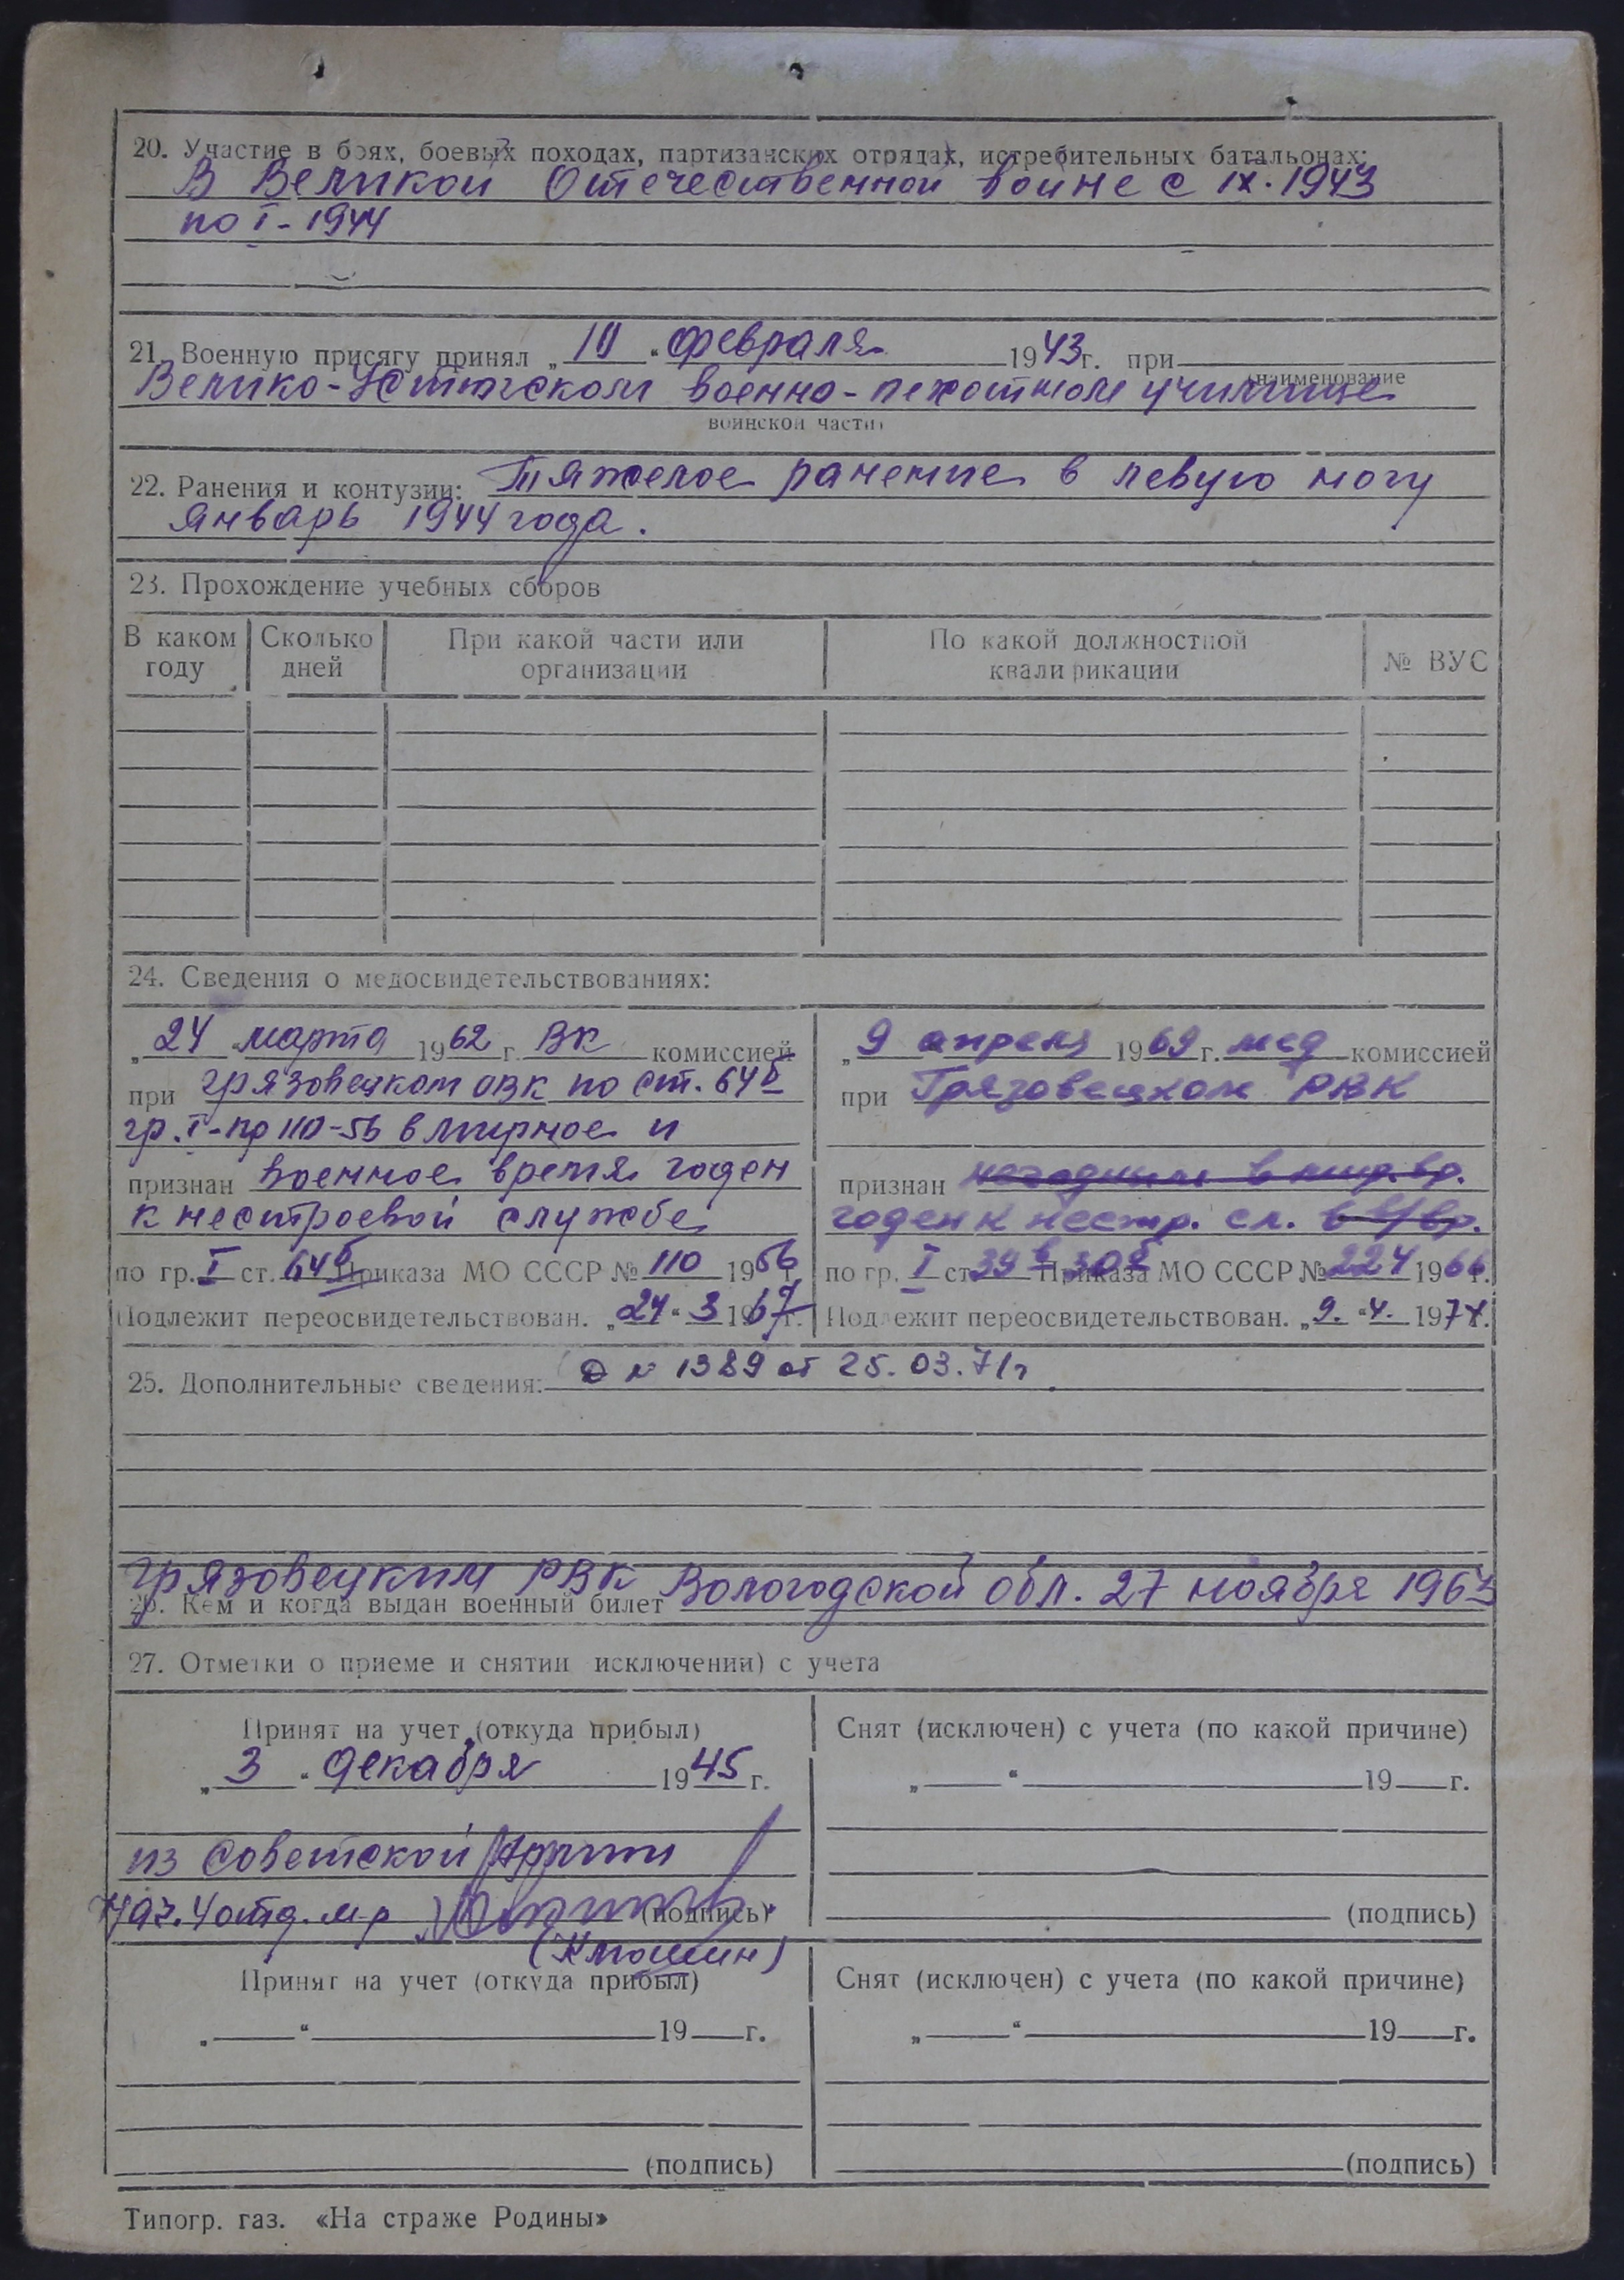 20. Участие в боях, боевых походах, партизанских отрядах, истребительных батальонах:
В Великой Отечественной войне с IX. 1943
по I - 1944
21. Военную присягу принял „10“ февраля 1943г. при
(наименование
Велико-Устюгском военно-пехотном училище
воинской части)
22. Ранения и контузии: Тяжелое ранение в левую ногу
январь 1944 года.
23. Прохождение учебных сборов
В каком году Сколько дней При какой части или организации По какой должностной квалификации № ВУС
24. Сведения о медосвидетельствованиях:
„24“ марта 1962 г. ВК комиссией
при Грязовецком ОВК по ст. 64б
гр. I - пр 110-56 в мирное и
признан военное время годен
к нестроевой службе
по гр. I ст. 64б Приказа МО СССР № 110 1956 г.
Подлежит переосвидетельствован. „24“ 3 1967г.
„9 апреля 1969 г. мед комиссией
при Грязовецком РВК
признан негодным в мир. вр.
годен к нестр. сл. в в/вр.
по гр. I ст 39в 30б Приказа МО СССР № 224 1966г.
Подлежит переосвидетельствован. „9.“ 4. 1974.
25. Дополнительные сведения: № 1389 от 25. 03. 71г
Грязовецким РВК Вологодской обл. 27 ноября 1963
26. Кем и когда выдан военный билет
27. Отметки о приеме и снятии исключении) с учета
Принят на учет (откуда прибыл)
„3“ декабря 1945 г.
из Советской Армии
Нач. 4 отд. м-р (подпись)
(Клюшин)
Снят (исключен) с учета (по какой причине)
„ “ 19 г.
(подпись)
Принят на учет (откуда прибыл)
„ “ 19 г.
(подпись)
Снят (исключен) с учета (по какой причине)
„ “ 19 г.
(подпись)
Типогр. газ. «На страже Родины»